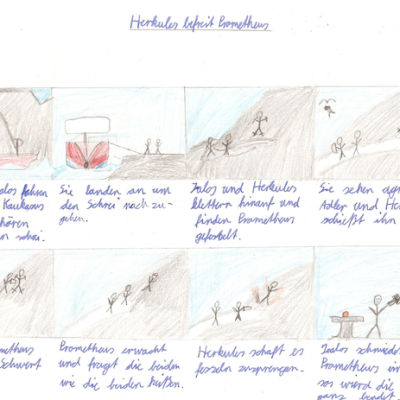 Herkules befreit Prometheus
fahren
Kaukasus
hören
n schrei.
Sie landen an um
den Schrei nach zu-
gehen.
Jalos und Herkules
klettern hinauf und
finden Prometheus
gefesselt.
Sie sehen
Adler und He
schießt ihn
metheus
Schwert
Prometheus erwacht
und fragt die beiden
wie die beiden heißen.
Herkules schaft es
fesseln zusprengen.
schmied
Prometheus
die
ganz